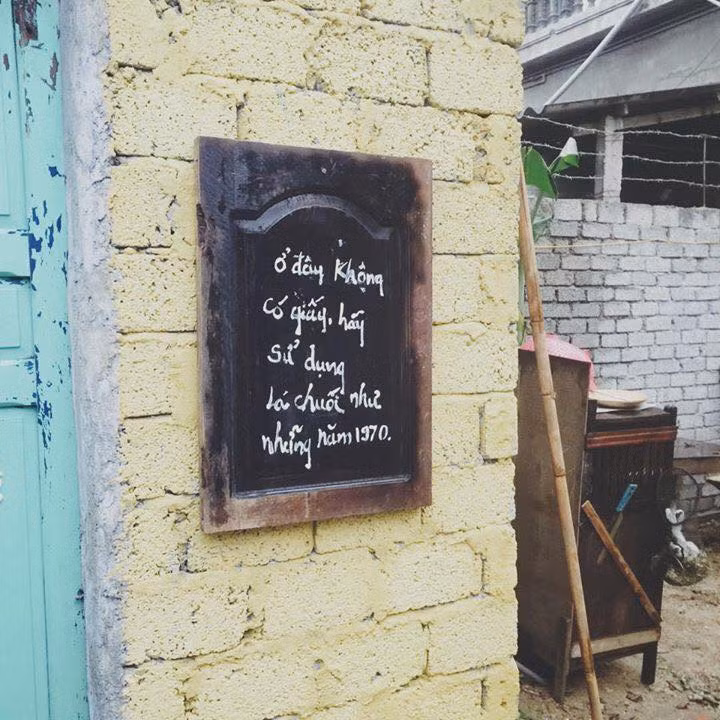 ở đây không
có giấy, hãy
sử dụng
Lá chuối như
những năm 1970.